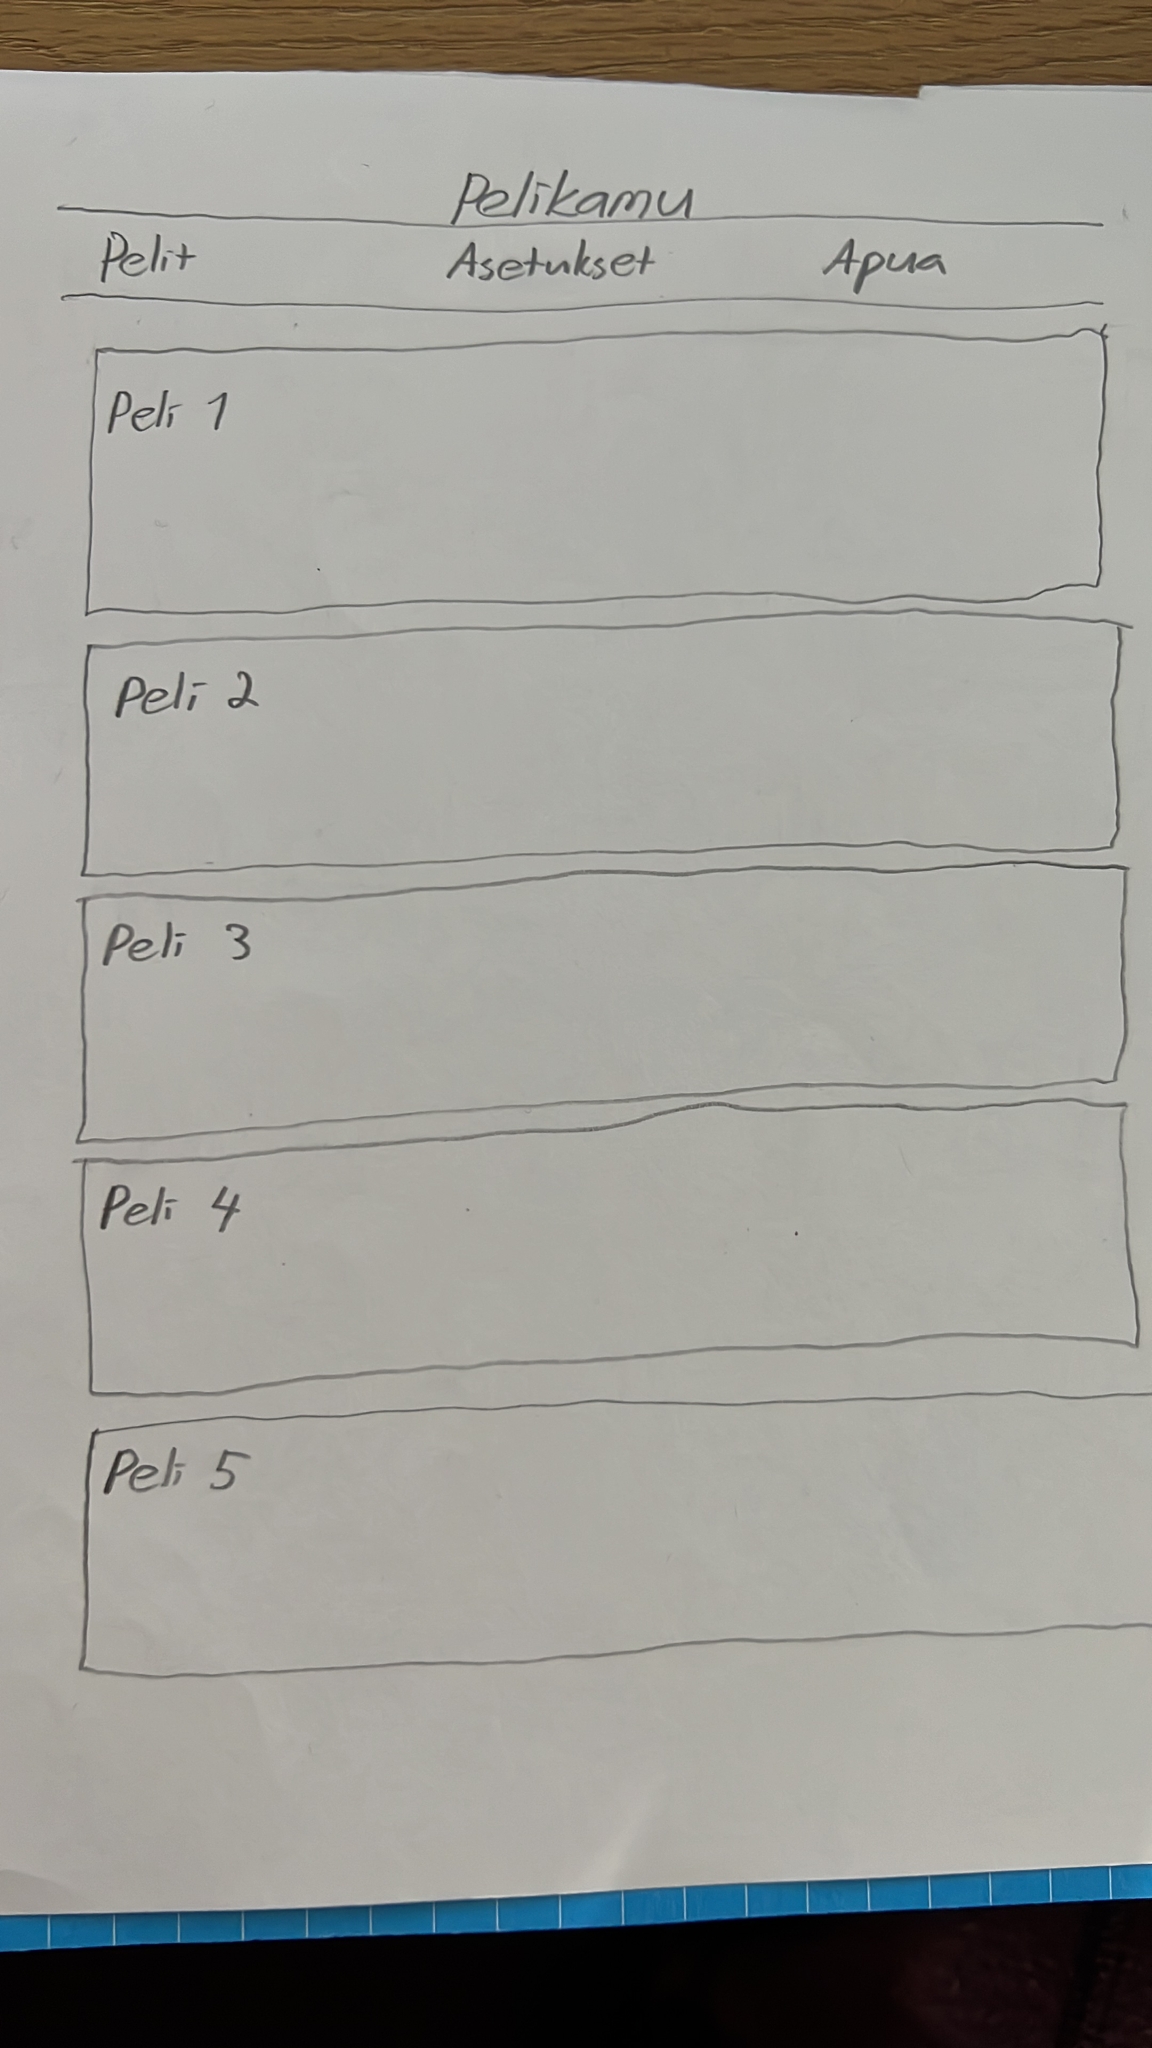 Pelikamu
Pelit Asetukset Apua
Peli 1
Peli 2
Peli 3
Peli 4
Peli 5